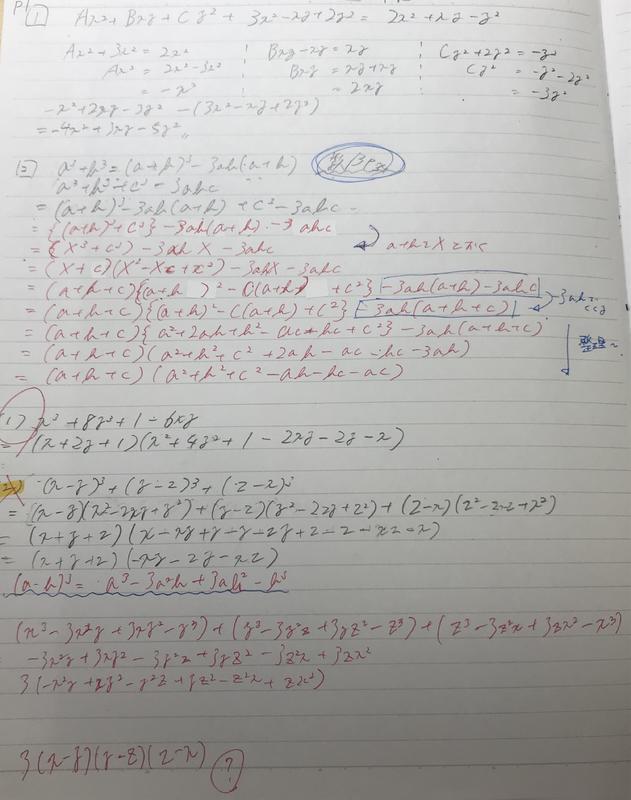 P1
1 Ax²+Bxy+Cy²+3x²-xy+2y² = 2x²+xy-y²
Ax²+3x²=2x² Bxy-xy=xy Cy²+2y²=-y²
Ax²=2x²-3x² Bxy=xy+xy Cy²=-y²-2y²
=-x² =2xy =-3y²
-x²+2xy-3y²-(3x²-xy+2y²)
=-4x²+3xy-5y²
2 a³+b³=(a+b)³-3ab(a+b)
a³+b³+c³-3abc
=(a+b)³-3ab(a+b)+c³-3abc
={(a+b)³+c³}-3ab(a+b)-3abc
=(X³+c³)-3abX-3abc a+b=Xとする
=(X+c)(X²-Xc+c²)-3abX-3abc
=(a+b+c){(a+b)²-c(a+b)+c²}-3ab(a+b)-3abc
=(a+b+c){(a+b)²-c(a+b)+c²}-3ab(a+b+c)
=(a+b+c){a²+2ab+b²-ac-bc+c²}-3ab(a+b+c)
=(a+b+c)(a²+b²+c²+2ab-ac-bc-3ab) 整理
=(a+b+c)(a²+b²+c²-ab-bc-ac)
(1) x³+8y³+1-6xy
=(x+2y+1)(x²+4y²+1-2xy-2y-x)
(2) (x-y)³+(y-z)³+(z-x)³
=(x-y)(x²-2xy+y²)+(y-z)(y²-2yz+z²)+(z-x)(z²-2zx+x²)
=(x+y+z)(-xy-zy-xz)
(a-b)³=a³-3a²b+3ab²-b³
(x³-3x²y+3xy²-y³)+(y³-3y²z+3yz²-z³)+(z³-3z²x+3zx²-x³)
-3x²y+3xy²-3y²z+3yz²-3z²x+3zx²
3(-x²y+xy²-y²z+yz²-z²x+zx²)
3(x-y)(y-z)(z-x) ?